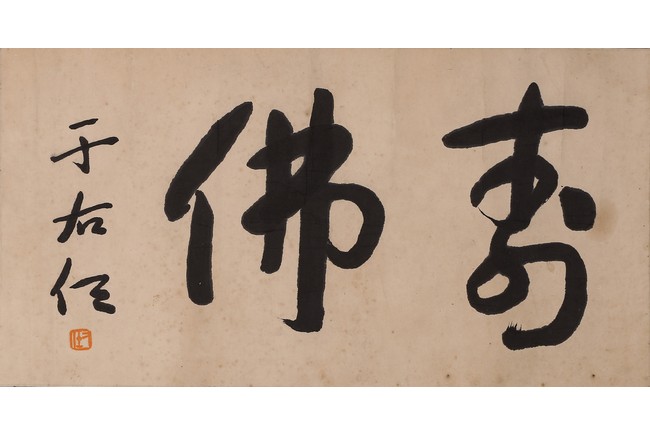 壽佛
于右任